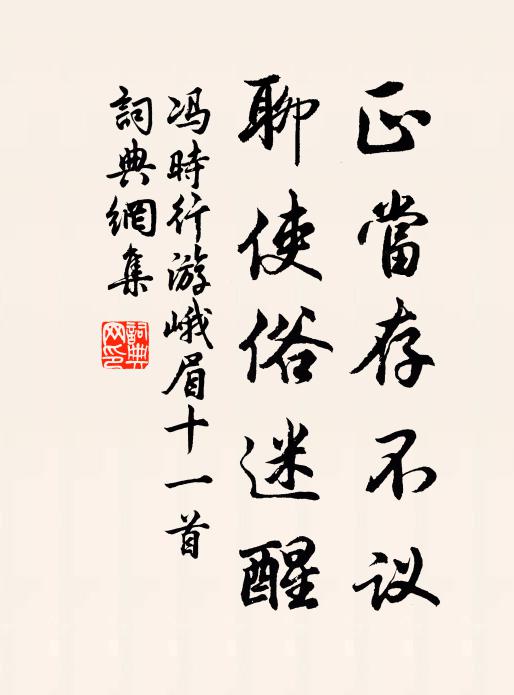 正當存不议
聊使俗迷醒
冯時行游峨眉十一首
詞典網集
詞典网印